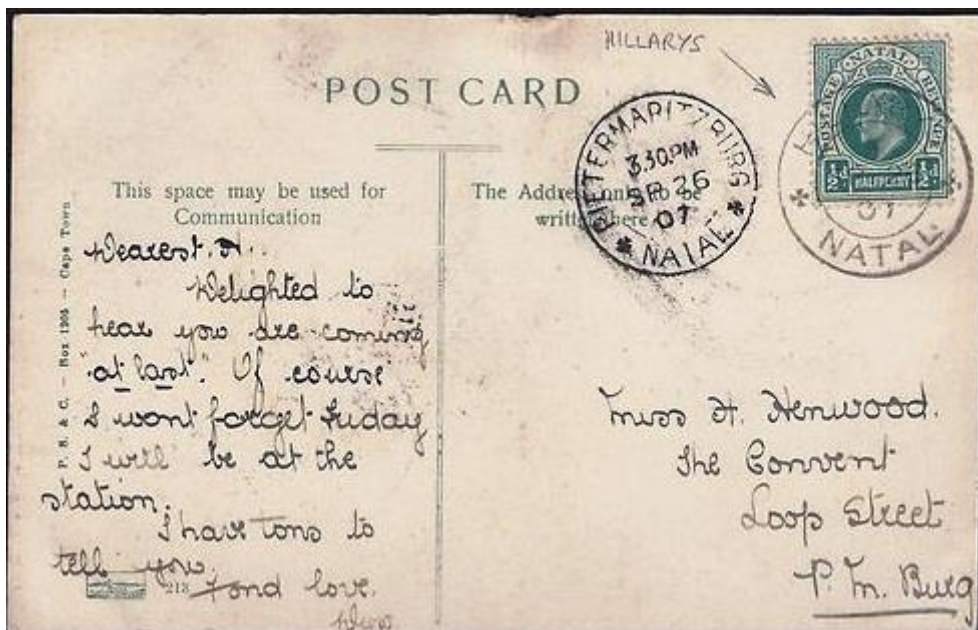 HILLARYS
POST CARD
NATAL
POSTAGE REVENUE
½d HALFPENNY ½d
07
NATAL
PIETERMARITZBURG
3.30PM
SP 26
07
NATAL
This space may be used for
Communication
The Address only to be
written here
P. S. & C. – Box 1305 – Cape Town
Dearest H.
Delighted to
hear you are coming
"at last". Of course
I wont forget Friday
I will be at the
station.
I have tons to
tell you.
213
Fond love.
Miss H. Henwood.
The Convent
Loop Street
P. M. Burg